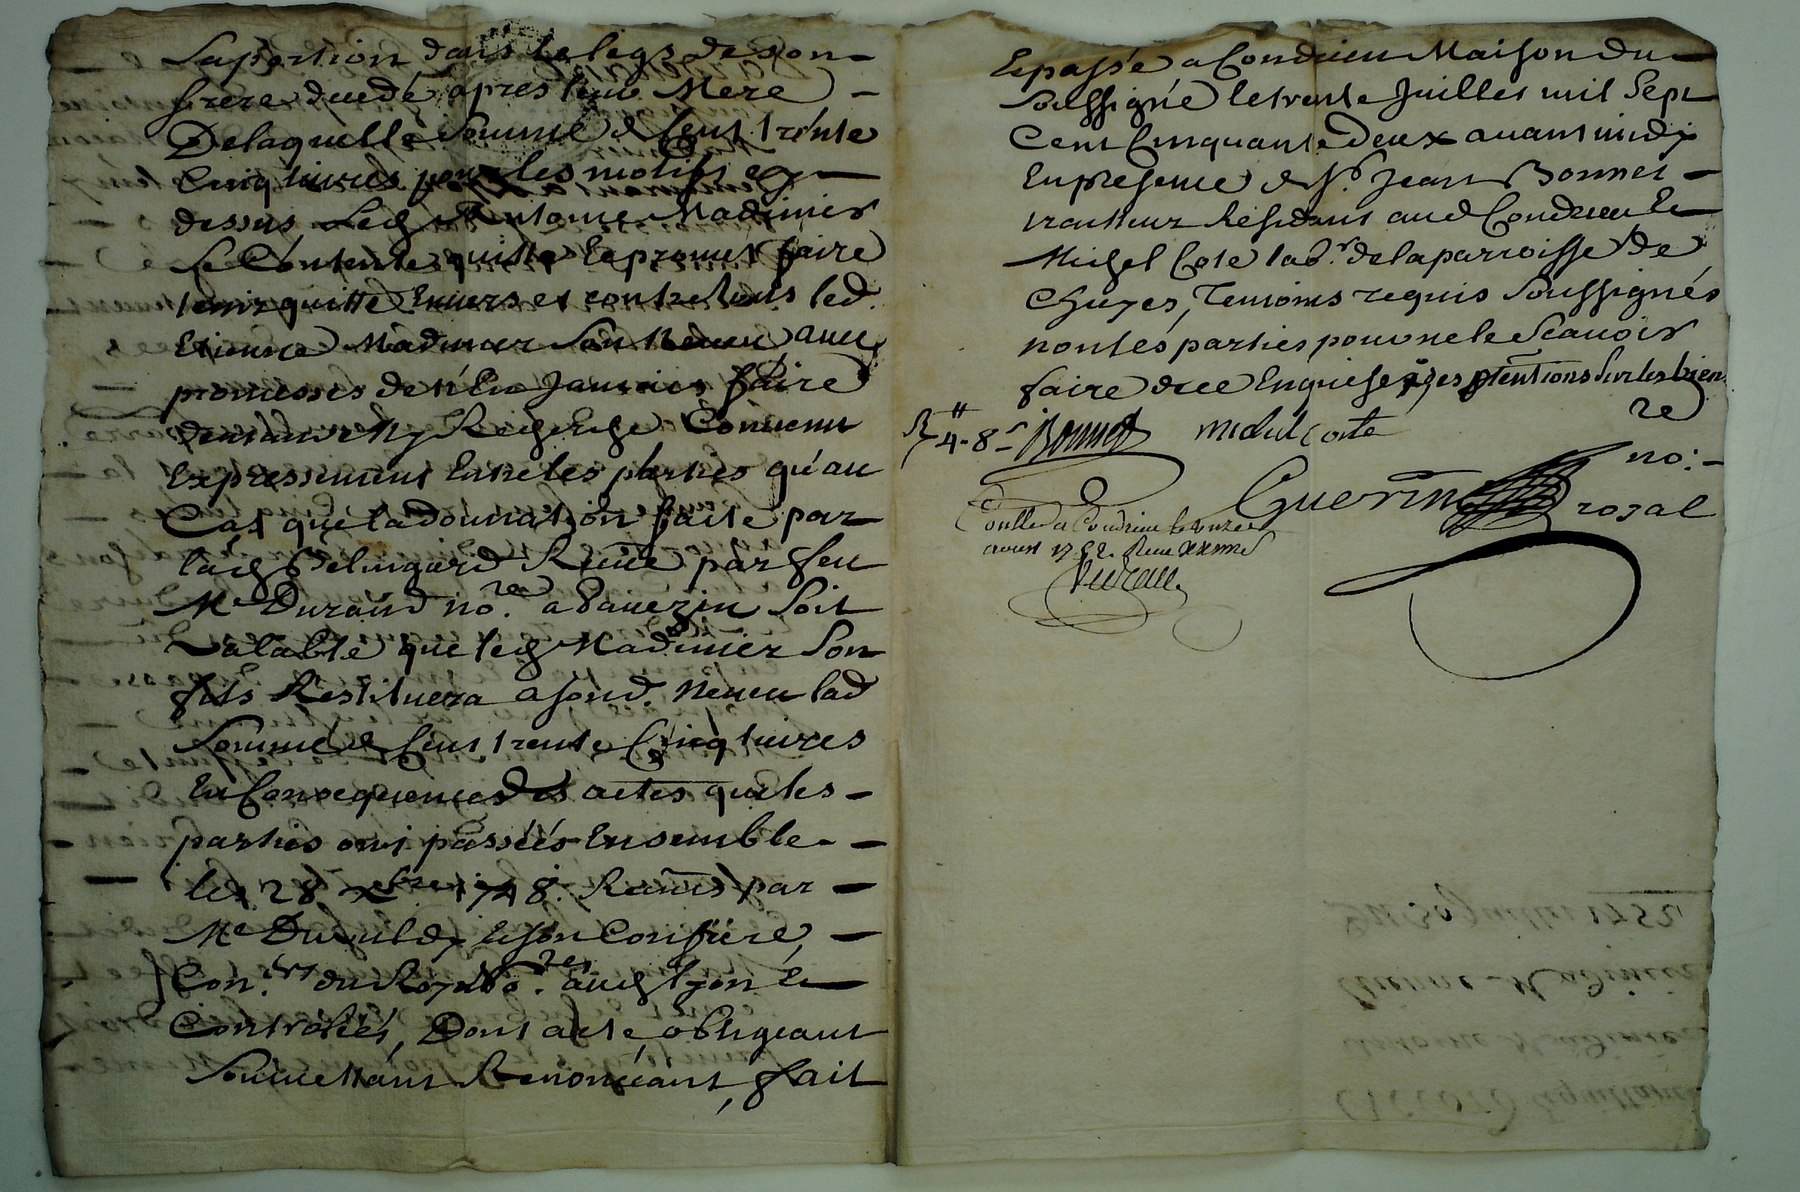 Sa portion dans le legs de son
frere decedé apres leur Mere
De laquelle somme de Cent trente
Cinq livres pour les motifs cy
dessus Led. Antoine Madinier
Se Contente quitte et promet faire
tenir quitte Envers et contre tous led.
Etienne Madinier son Neveu avec
promesses de n'En Jamais faire
demande Ny Recherche Convenu
Expressement Entre les parties qu'au
Cas que la donnation faite par
lad. Belingard Reçüe par feu
Me Durand no.re a Pavezin soit
valable que led. Madinier Son
fils Restituera a sond. Neveu lad
Somme de Cent trente Cinq livres
En Consequence des actes que les
parties ont passées Ensemble
les 28 xbre 1748. Reçus par
Me et son Confrere
Con.ers du Roy No.res aud. Lyon et
Controllés, Dont acte, obligeant
Soumettant Renonçant, fait
Et passé a Condrieu Maison du
Soussigné le trente Juillet mil Sept
Cent Cinquante Deux avant midy
En presence de Sr. Jean Bonnet
traitteur Residant aud Condrieu et
Michel Cote lab.r de la parroisse de
Chuyes, Temoins requis Soussignés
non les parties pour ne le Scavoir
faire de ce Enquise ses ptentions sur les biens
R 4-8s Bonnet michel Coste
Guerin no:re royal
Conllé a Condrieu le onze
aoust 1752. Reçu
Du 30 juillet 1752
Etienne Madinier
Antoine Madinier
Accord quittance